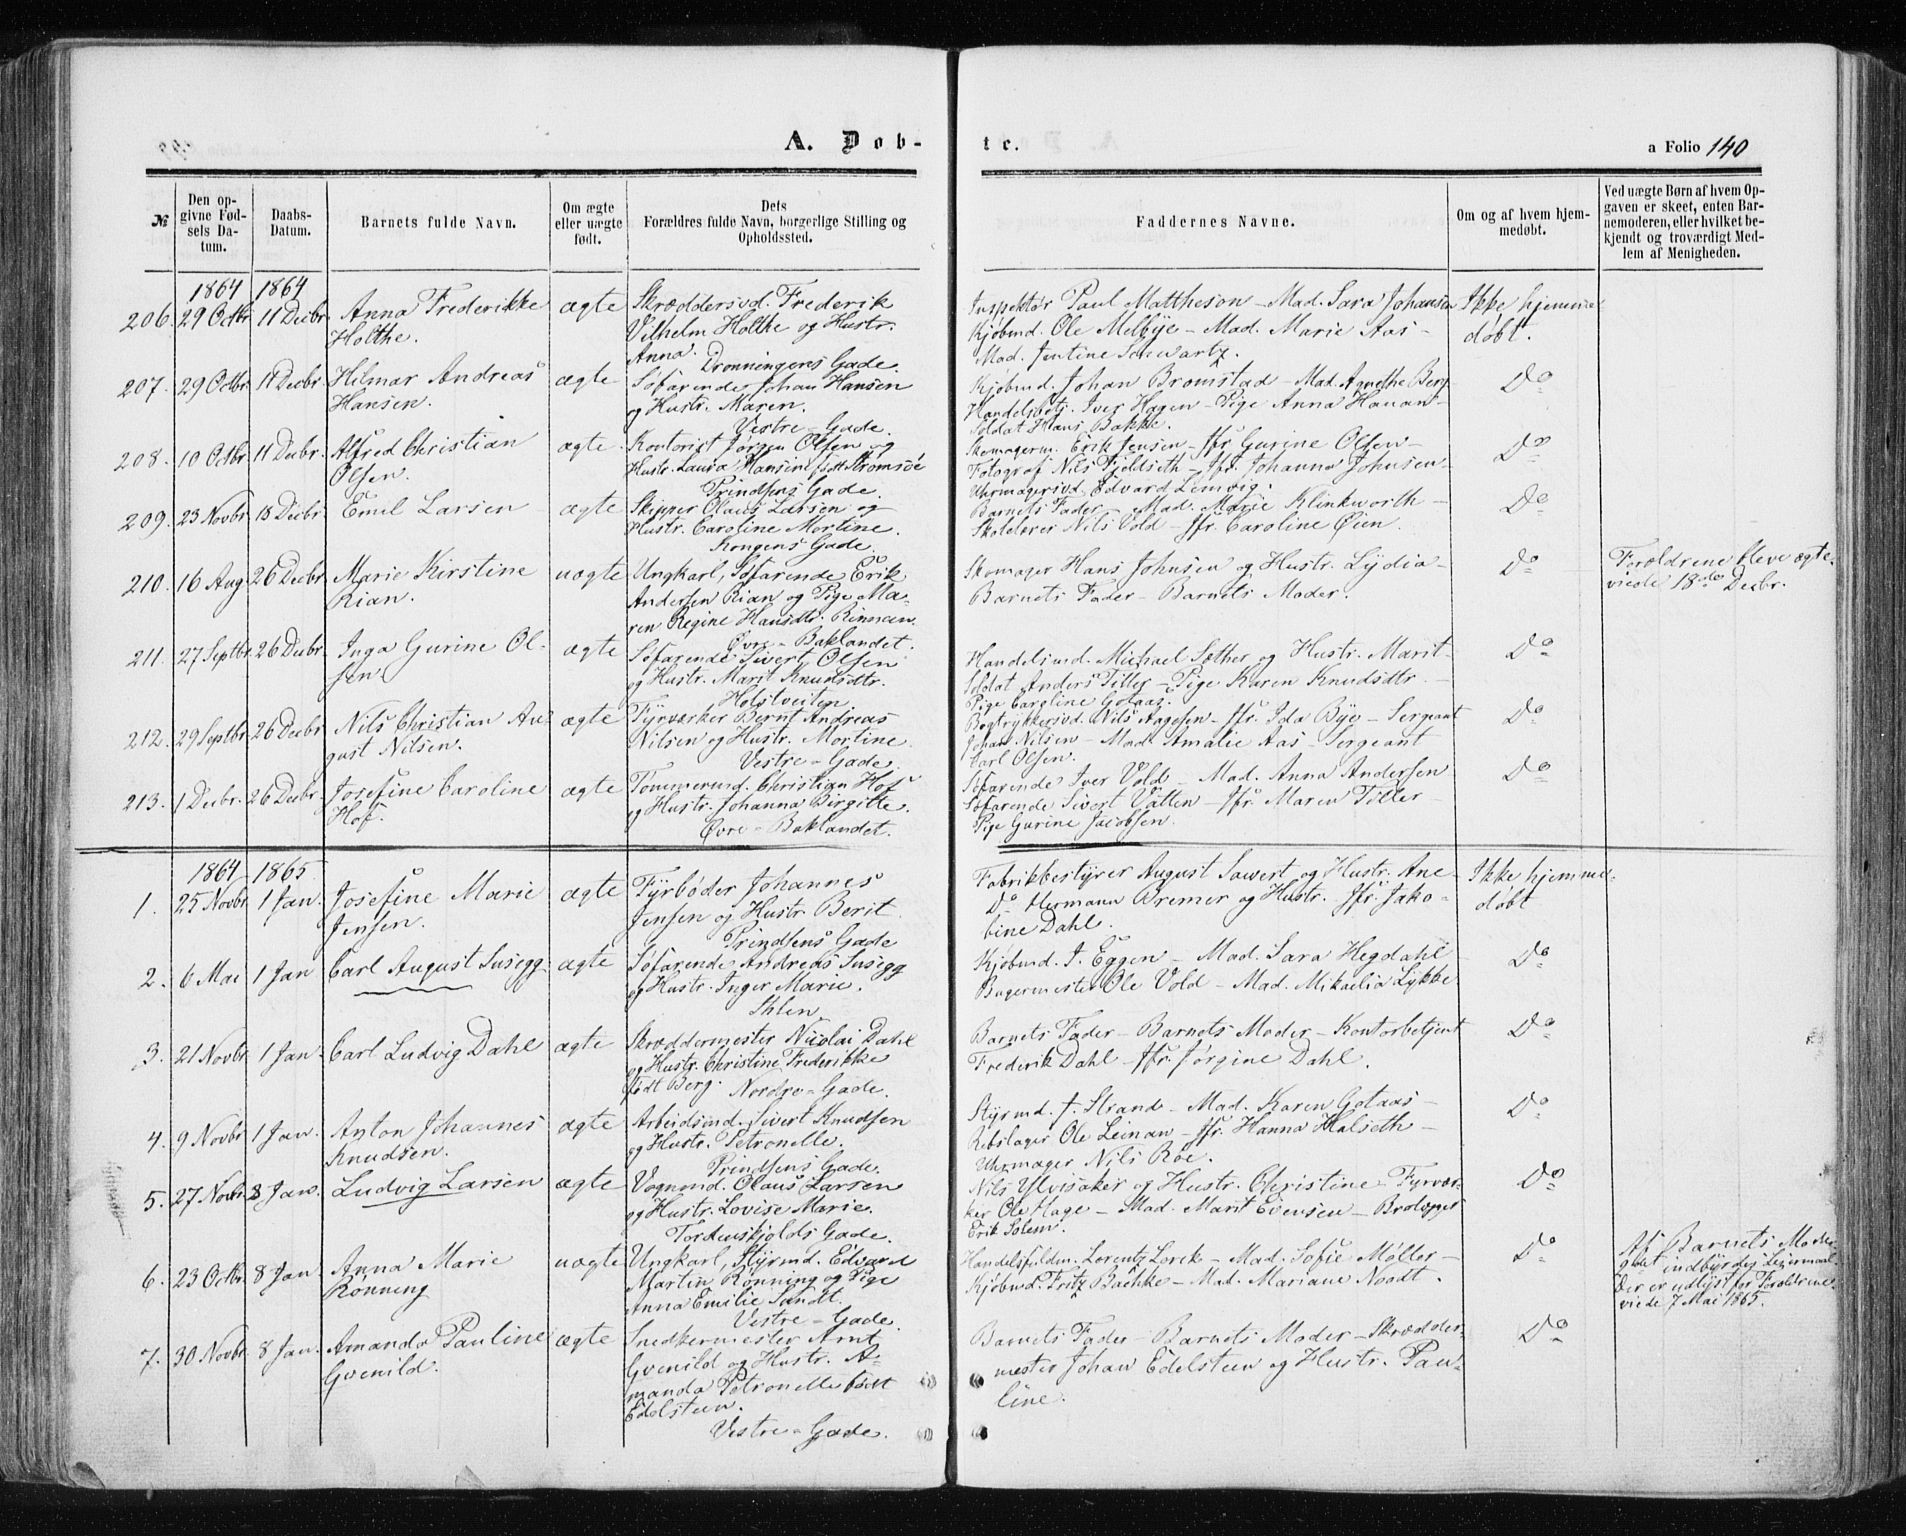 A. Døb-
№
Den op-
givne Fød-
sels Da-
tum.
Daabs-
Datum.
Barnets fulde Navn.
Om ægte
eller uægte
født.
Dets
Forældres fulde Navn, borgerlige Stilling og
Opholdssted.
1864 1864
206. 29 Octbr 11 Decbr Anna Frederikke ægte Skræddersvd. Frederik
Holthe. Vilhelm Holthe og Hustr.
Anna.
Dronningens Gade.
207. 29 Octbr 11 Decbr. Hilmar Andreas ægte Søfarende Johan Hansen
Hansen. og Hustr. Maren.
Vestre-Gade.
208. 10 Octbr 11 Decbr. Alfred Christian ægte Kontorist Jørgen Olsen og
Olsen. Hustr. Laura Hansine født Strømsøe
Prindsens Gade.
209. 23 Novbr 18 Decbr. Emil Larsen ægte Skipper Olaus Larsen og
Hustr. Caroline Mortine.
Kongens Gade.
210. 16 Aug 26 Decbr. Marie Kirstine uægte Ungkarl, Søfarende Erik
Rian. Andersen Rian og Pige Ma-
ren Regine Hansdtr. Rinnan.
Øvre-Baklandet.
211. 27 Septbr 26 Decbr. Inga Gurine Ol- ægte Søfarende Sivert Olsen
sen og Hustr. Marit Knudsdtr.
Holstveiten
212. 29 Septbr 26 Decbr Nils Christian Au- ægte Fyrværker Bernt Andreas
gust Nilsen. Nilsen og Hustr. Mortine
Vestre-Gade.
213. 1 Decbr. 26 Decbr. Josefine Caroline ægte Tømmermd. Christian Hof
Hof. og Hustr. Johanna Birgitte.
Øvre-Baklandet.
1864 1865
1. 25 Novbr 1 Jan. Josefine Marie ægte Fyrbøder Johannes
Jensen. Jensen og Hustr Berit
Prindsens Gade
2. 6 Mai 1 Jan Carl August Susegg ægte Søfarende Andreas Susegg
og Hustr. Inger Marie.
Ihlen
3. 21 Novbr 1 Jan. Carl Ludvig Dahl ægte Skræddermester Nicolai Dahl
og Hustr. Christine Frederikke
født Berg. Nordre-Gade.
4. 9 Novbr 1 Jan. Anton Johannes ægte Arbeidsmd. Sivert Knudsen
Knudsen. og Hustr. Petronelle.
Prindsens Gade.
5. 27 Novbr 8 Jan. Ludvig Larsen ægte Vognmd. Olaus Larsen
og Hustr. Lovise Marie.
Tordenskjolds Gade.
6. 23 Octbr. 8 Jan. Anna Marie uægte Ungkarl, Styrmd. Edvard
Rønning Martin Rønning og Pige
Anna Emilie Sundt.
Vestre-Gade.
7. 30 Novbr 8 Jan. Amanda Pauline ægte Snedkermester Arnt
Gvenild. Gvenild og Hustr. A-
manda Petronelle født
Edelsteen.
Vestre-Gade.
te.
a Folio 140
Faddernes Navne.
Om og af hvem hjem-
medøbt.
Ved uægte Børn af hvem Op-
gaven er skeet, enten Bar-
nemoderen, eller hvilket be-
kjendt og troværdigt Med-
lem af Menigheden.
Inspektør Paul Mattheson - Mad. Sara Johansen Ikke hjemme
Kjøbmd. Ole Melbye - Mad. Marie Aas - døbt.
Mad. Jentine Schwartz.
Kjøbmd. Johan Bromstad - Mad. Agnethe Berg Do
Handelsbetj. Iver Hagen - Pige Anna Hanan-
Soldat Hans Bakke.
Skomagerm. Erik Jensen - Jfr. Gurine Olsen - Do
Fotograf Nils Fjeldseth - Jfr. Johanna Johnsen
Uhrmagersvd. Edvard Lemvig.
Barnets Fader - Mad. Marie Klinkworth - Do
Skolelærer Nils Vold - Jfr. Caroline Øien.
Skomager Hans Johnsen og Hustr. Lydia - Do Forældrene bleve ægte-
Barnets Fader - Barnets Moder. viede 18de Decbr.
Handelsmd. Michael Sæther og Hustr. Marit- Do
Soldat Anders Tiller - Pige Karen Knudsdtr. -
Pige Caroline Gotaas.
Bogtrykkersvd. Nils Aagesen - Jfr. Ida Bye - Sergeant Do
Johan Nilsen - Mad. Amalie Aas - Sergeant
Carl Olsen.
Søfarende Iver Vold - Mad. Anna Andersen Do
Søfarende Sivert Vatten - Jfr. Maren Tiller -
Pige Gurine Jacobsen.
Fabrikbestyrer August Sawert og Hustr. Ane - Ikke hjemme-
Do Hermann Bremer og Hustr. Jfr. Jako- døbt
bine Dahl.
Kjøbmd. I. Eggen - Mad. Sara Hegdahl Do
Bagermester Ole Vold - Mad. Mikaelia Lykke
Barnets Fader - Barnets Moder - Kontorbetjent Do
Frederik Dahl - Jfr. Jørgine Dahl.
Styrmd. J. Strand - Mad. Karen Gotaas - Do
Rebslager Ole Leinan - Jfr. Hanna Halseth -
Uhrmager Nils Røe.
Nils Ylvisaker og Hustr. Christine Fyrvær- Do
ker Ole Hage - Mad. Marit Evensen - Brolægger
Erik Solem.
Handelsfuldm. Lorentz Lorck - Mad. Sofie Møller - Do Af Barnets Moder
Kjøbmd. Fritz Bachke - Mad. Mariane Noodt. indbyrdes Leiermaal.
Der er udlyst for Forældrene
viede 7 Mai 1865.
Barnets Fader - Barnets Moder - Skrædder- Do
mester Johan Edelsteen og Hustr. Pau-
line.